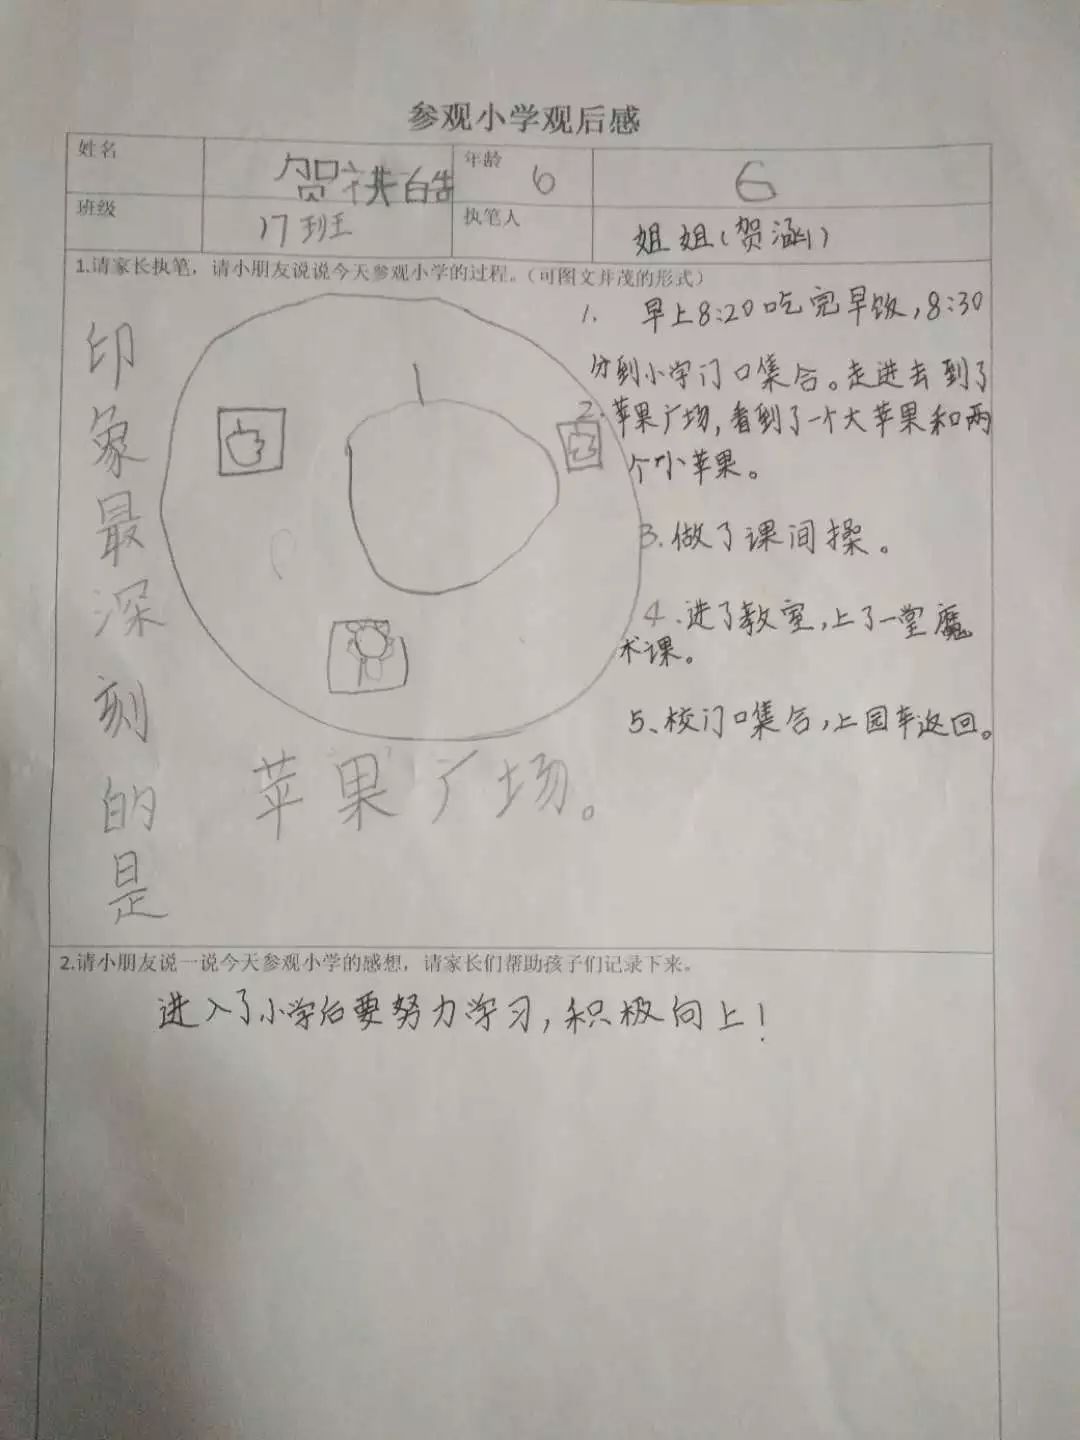 参观小学观后感
姓名 贺祺皓 年龄 6 6
班级 17班 执笔人 姐姐(贺涵)
1.请家长执笔，请小朋友说说今天参观小学的过程。（可图文并茂的形式）
印象最深刻的是
苹果广场。
1. 早上8:20吃完早饭,8:30
分到小学门口集合。走进去到了
2.苹果广场,看到了一个大苹果和两
个小苹果。
3.做了课间操。
4.进了教室,上了一堂魔
术课。
5、校门口集合,上园车返回。
2.请小朋友说一说今天参观小学的感想，请家长们帮助孩子们记录下来。
进入了小学后要努力学习,积极向上!